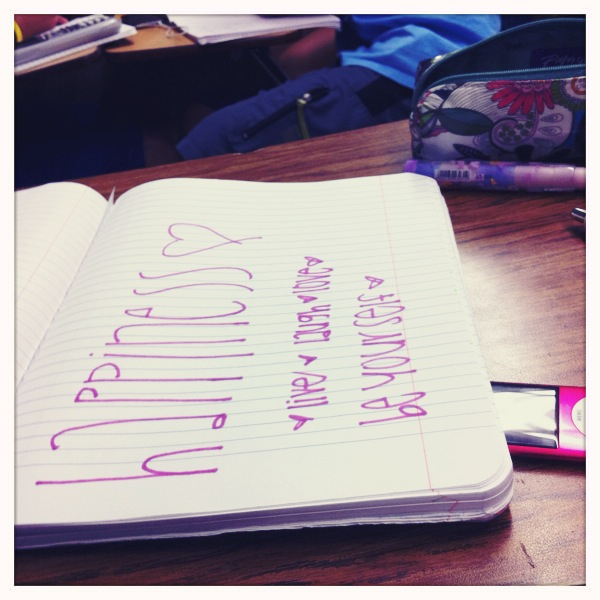 happiness ♡
♥ live ♥ laugh ♥ love ♥
be yourself ♥